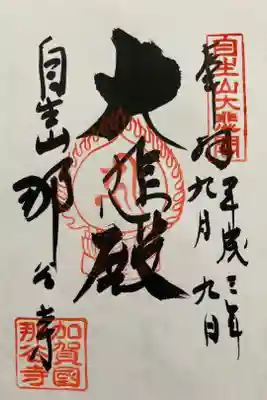 自生山大悲閣
奉拝
平成三年
九月九日
大悲殿
自生山
那谷寺
加賀國
那谷寺